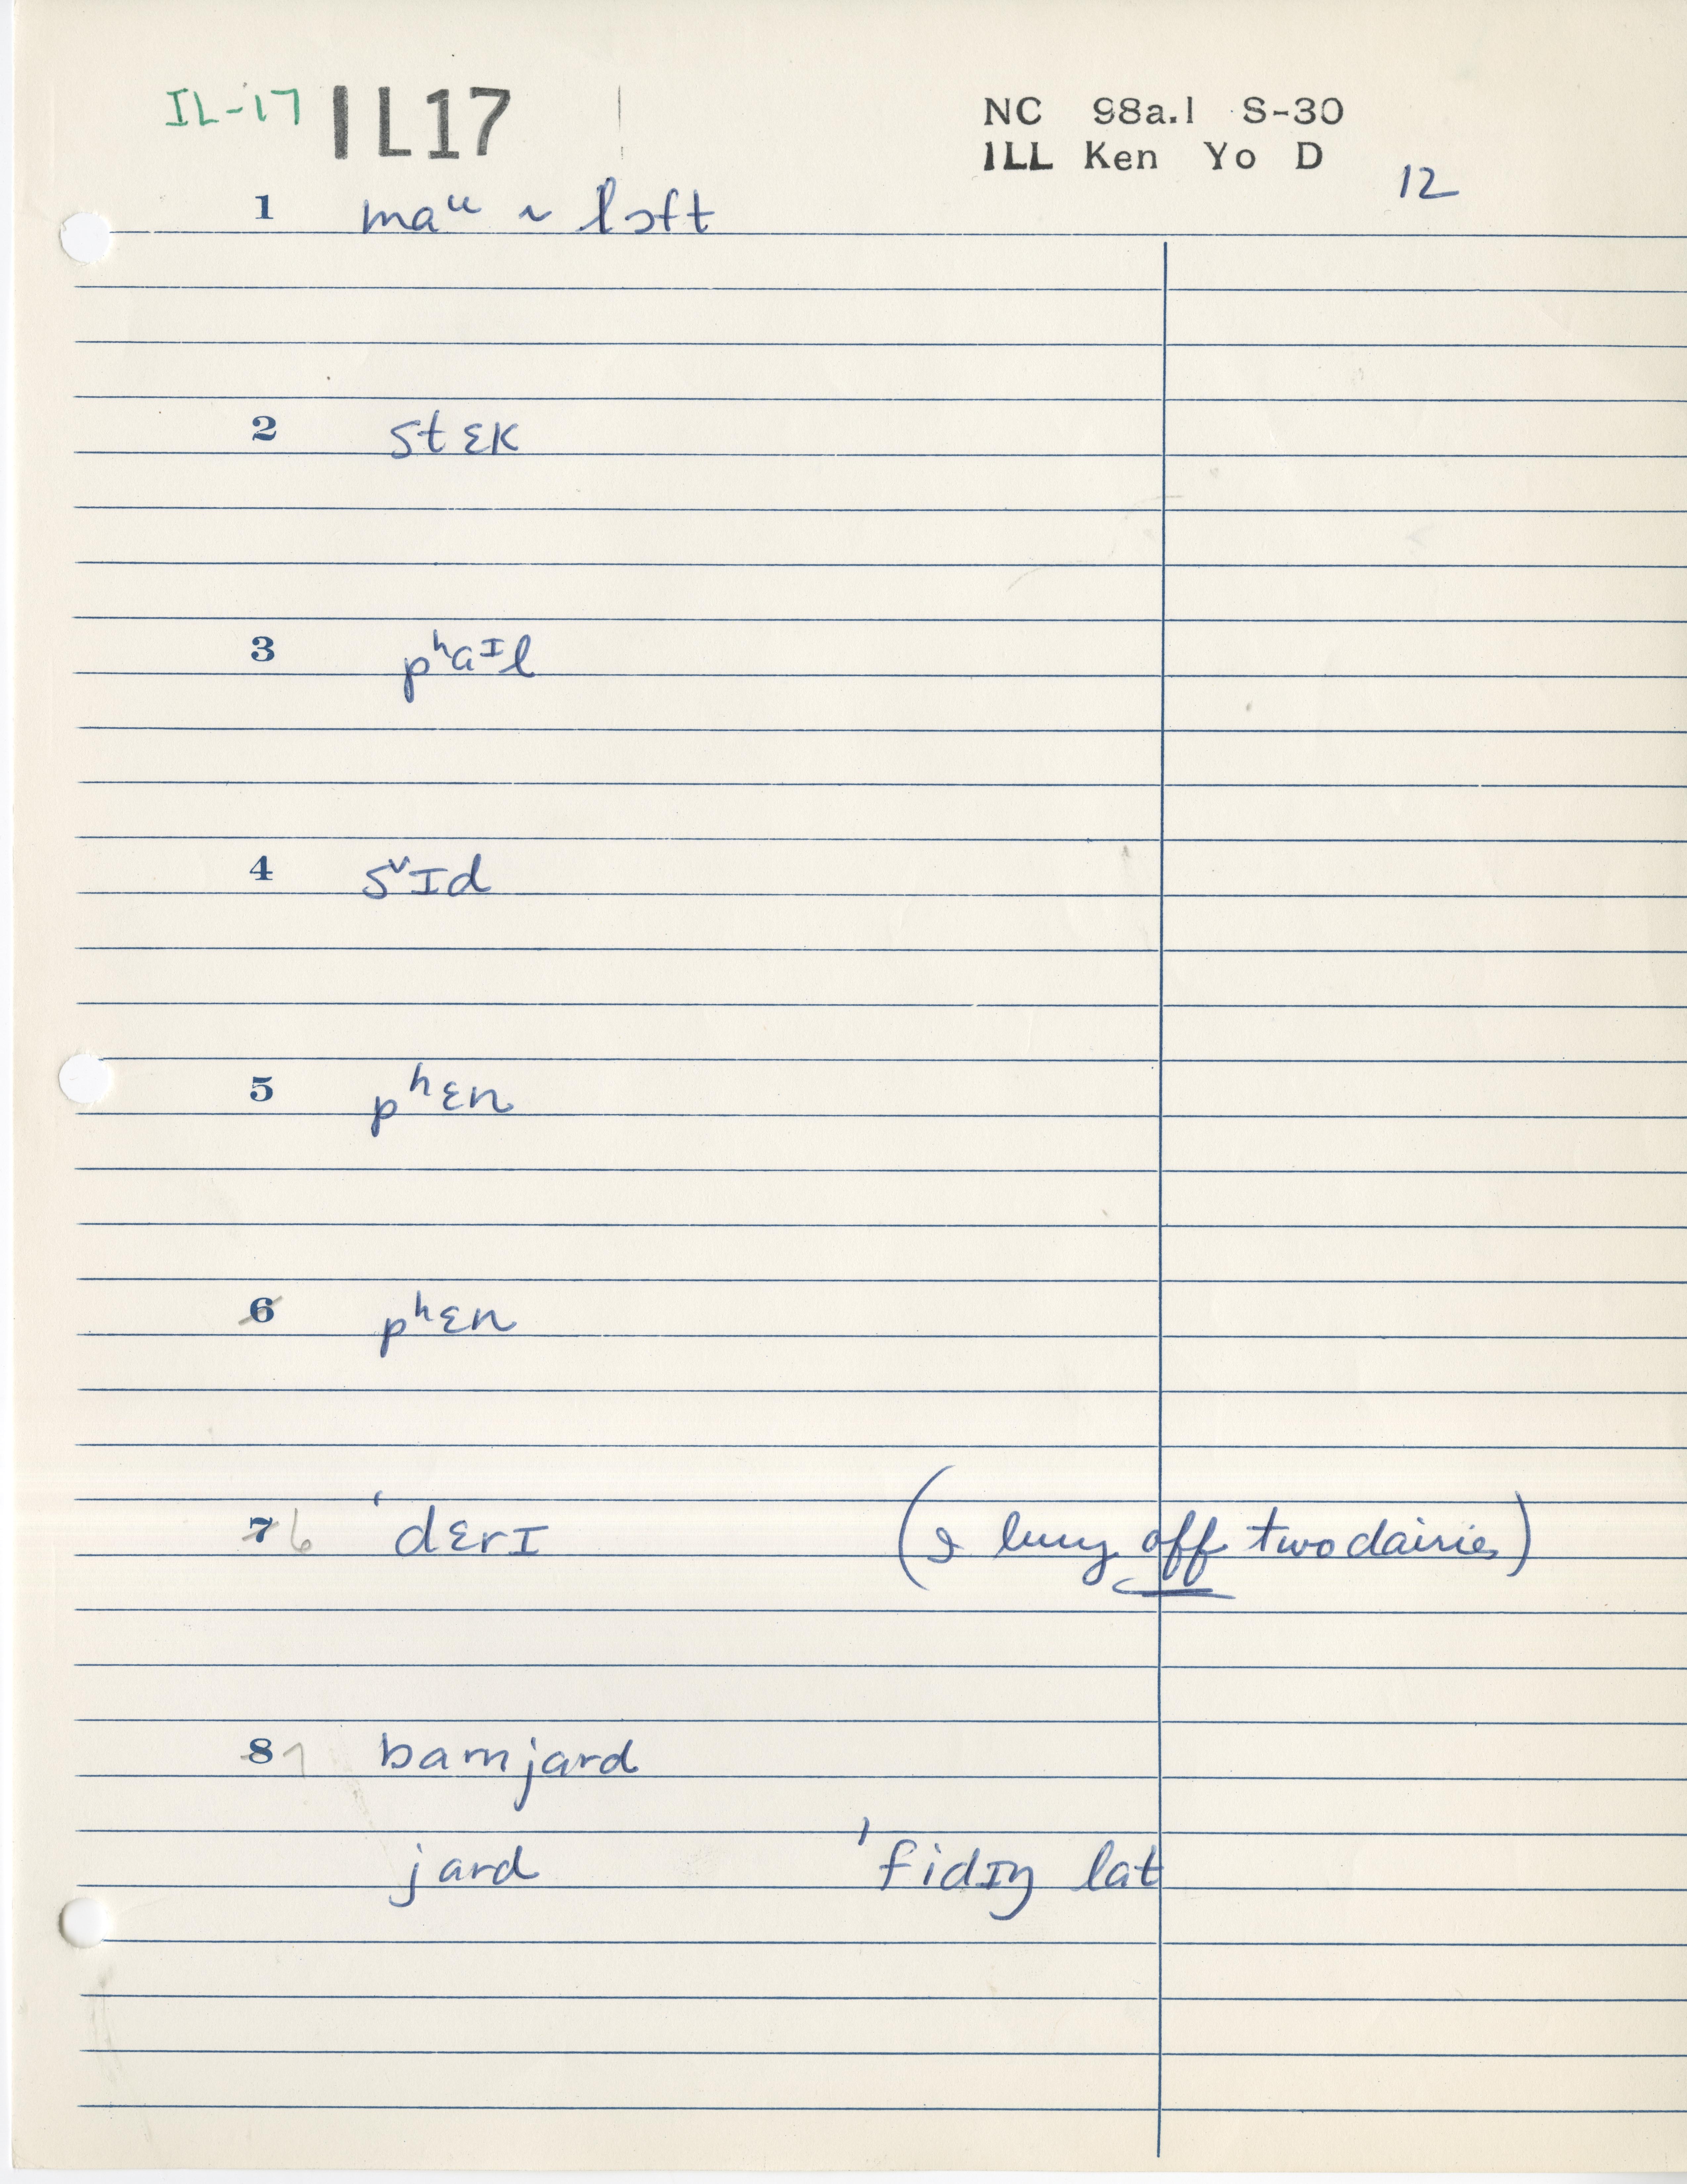 IL-17 IL17 NC 98a.1 S-30
ILL Ken Yo D 12
1 maᵘ ~ lɔft
2 stɛk
3 pʰaᴵl
4 s̬Id
5 pʰɛn
6 pʰɛn
7 6 ˈdɛrɪ (I buy off two dairies)
8 7 barnjard
jard ˈfidɪŋ lat